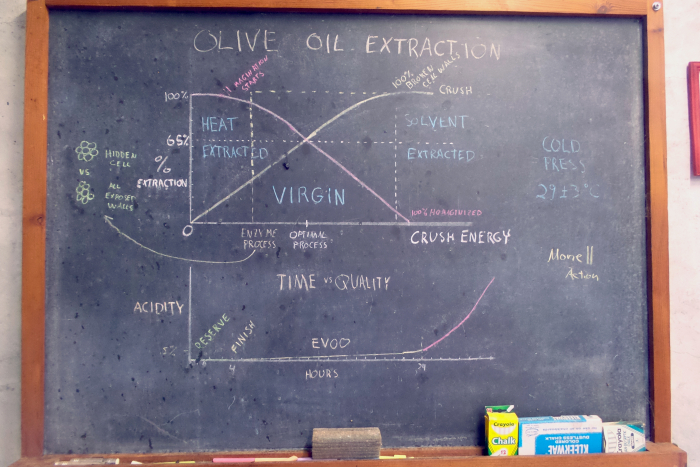 OLIVE OIL EXTRACTION
MACERATION
STARTS
100% BROKEN
CELL WALLS
100%
CRUSH
HEAT
EXTRACTED
SOLVENT
EXTRACTED
65%
%
EXTRACTION
HIDDEN
CELL
VS
ALL
EXPOSED
WALLS
VIRGIN
100% HOMOGENIZED
O
ENZYME
PROCESS
OPTIMAL
PROCESS
CRUSH ENERGY
COLD
PRESS
29±3°C
Action
TIME vs QUALITY
ACIDITY
FINISH
EVOO
4
HOURS
Crayola
Chalk
DUSTLESS CHALK
Crayola